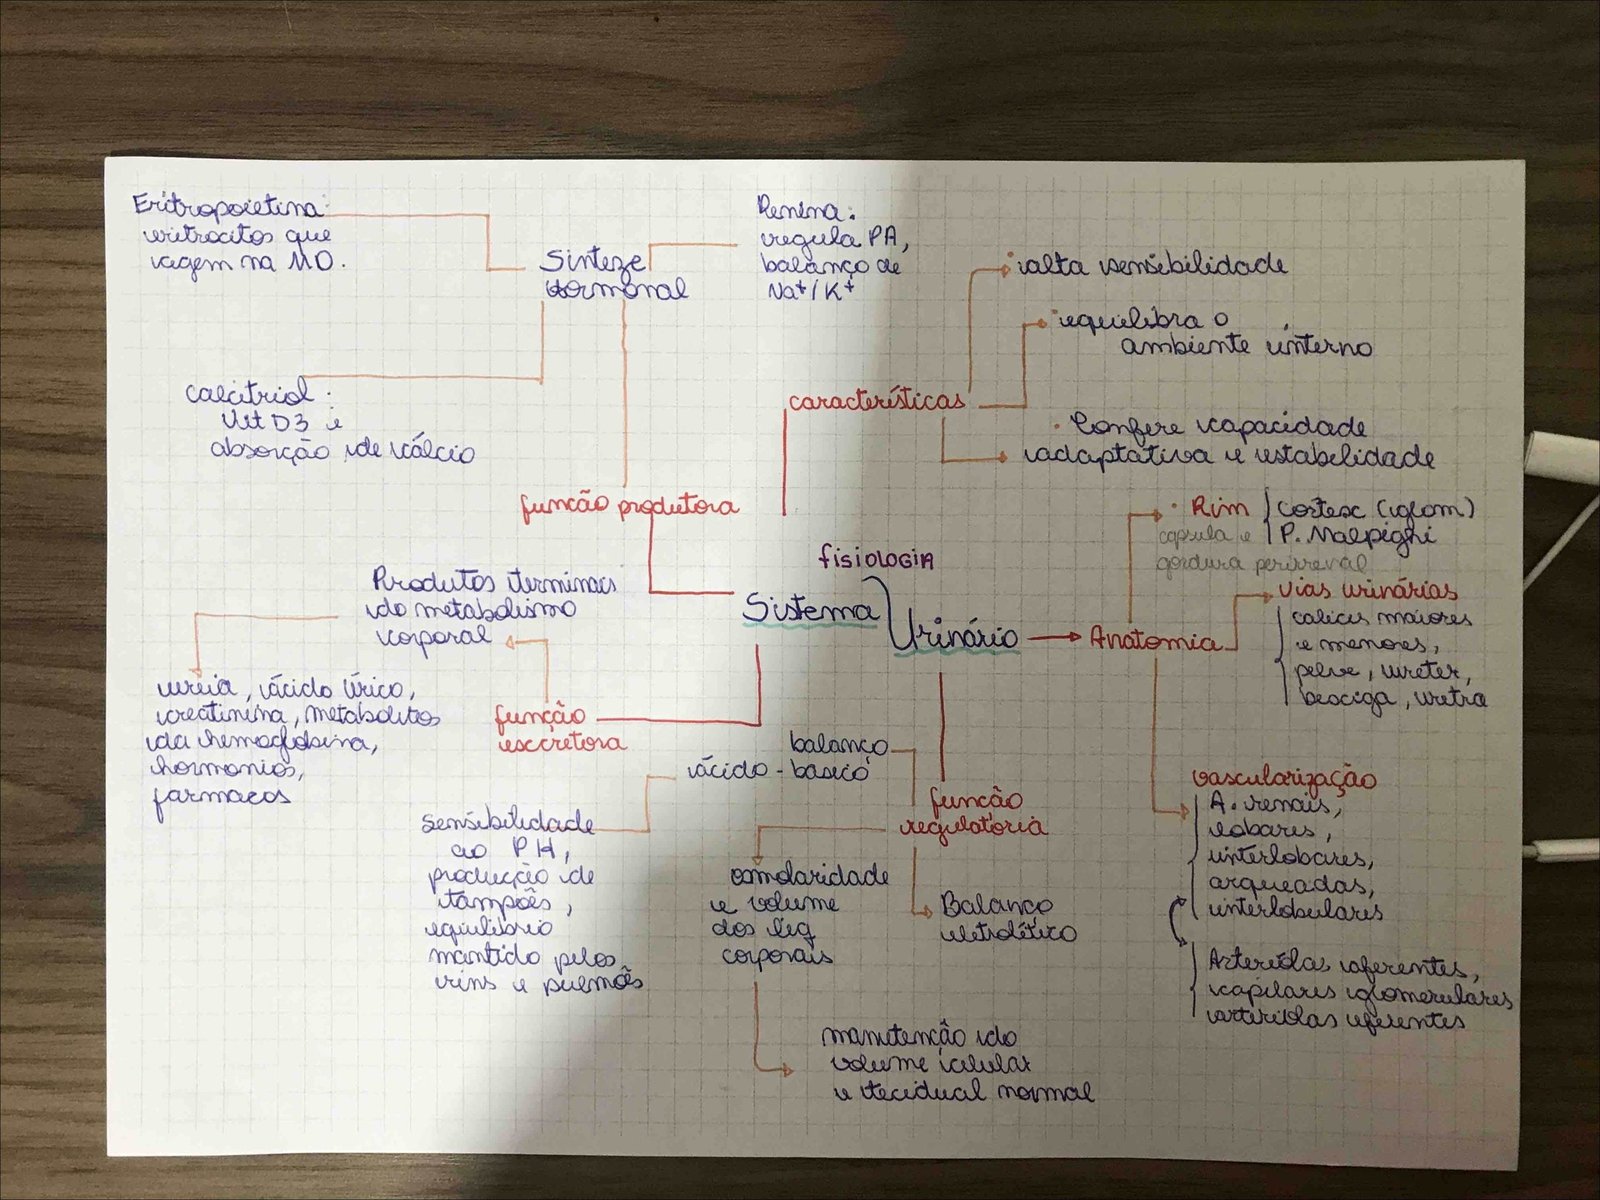 Eritropoietina:
eritrócitos que
vagem na MO.
Sinteze
Hormonal
Renina:
regula PA,
balanço de
Na+/K+
Calcitriol:
Vit D3 e
absorção de cálcio
função produtora
características
alta sensibilidade
equilibra o
ambiente interno
Confere capacidade
adaptativa e estabilidade
fisiologia
Sistema
Urinário
Anatomia
Rim
Cortex (glom)
P. Malpighi
capsula e
gordura perirrenal
vias urinárias
calices maiores
e menores,
pelve, ureter,
bexiga, uretra
vascularização
A. renais,
lobares,
interlobares,
arqueadas,
interlobulares
Arteríolas aferentes,
capilares glomerulares
arteríolas eferentes
Produtos terminais
do metabolismo
corporal
ureia, ácido úrico,
creatinina, metabolitos
da hemoglobina,
hormonios,
farmacos
função
excretora
balanço
ácido-basico
Sensibilidade
ao PH,
producção de
tampões,
equilibrio
mantido pelos
rins e pulmões
função
regulatoria
osmolaridade
e volume
dos liq
corporais
Balanço
eletrolítico
manutenção do
volume celular
e tecidual normal